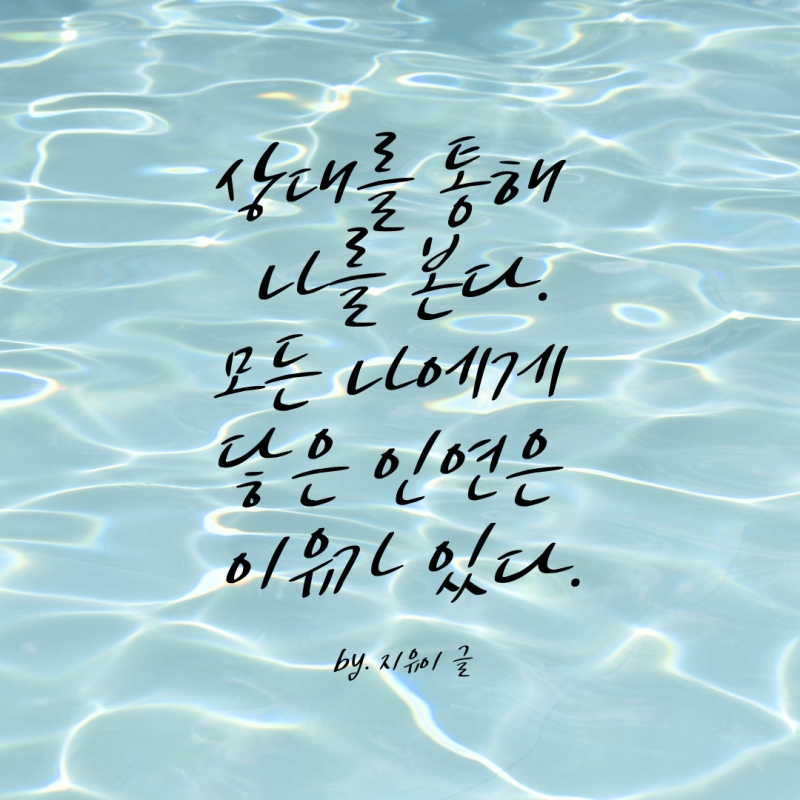 상대를 통해
나를 본다.
모든 나에게
닿은 인연은
이유가 있다.
by. 지유이 글